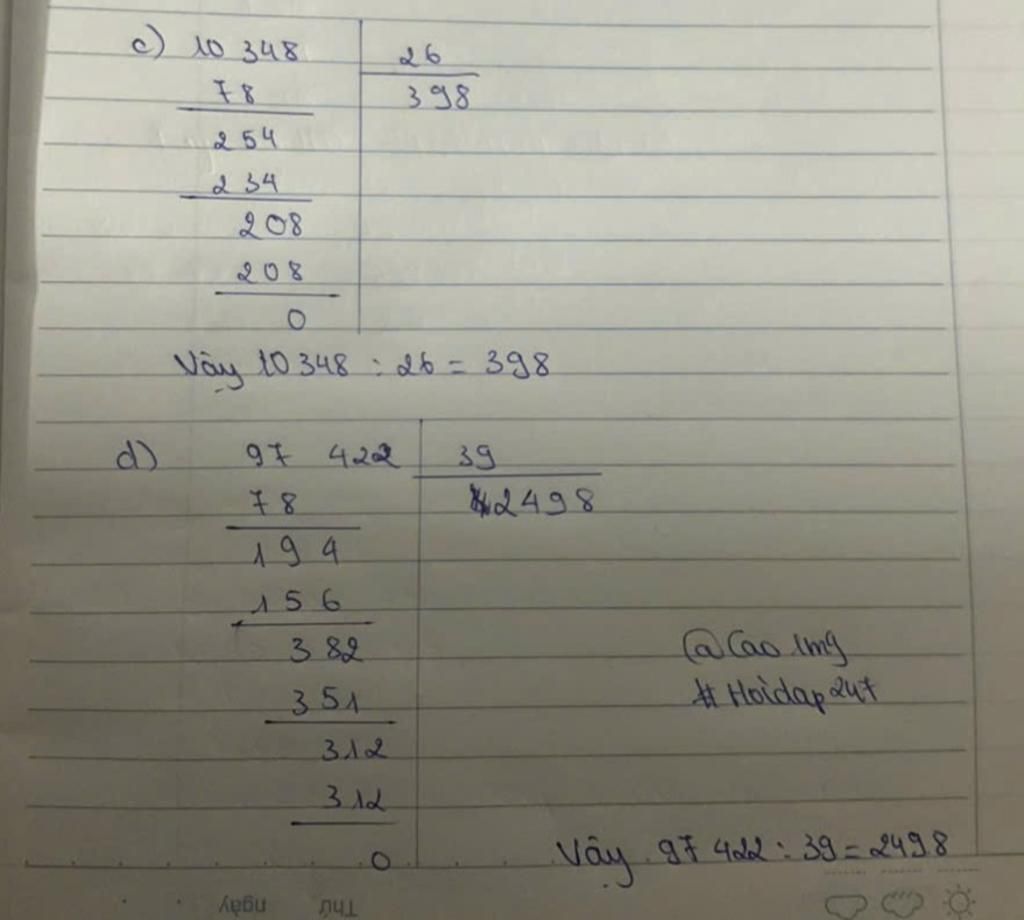 c) 10 348 26
78 398
254
234
208
208
0
Vậy 10 348 : 26 = 398
d) 97 422 39
78 2498
194
156
382
351
312
312
0
@Cao1m9
#Hoidap247
Vậy 97 422 : 39 = 2498
Thứ ngày